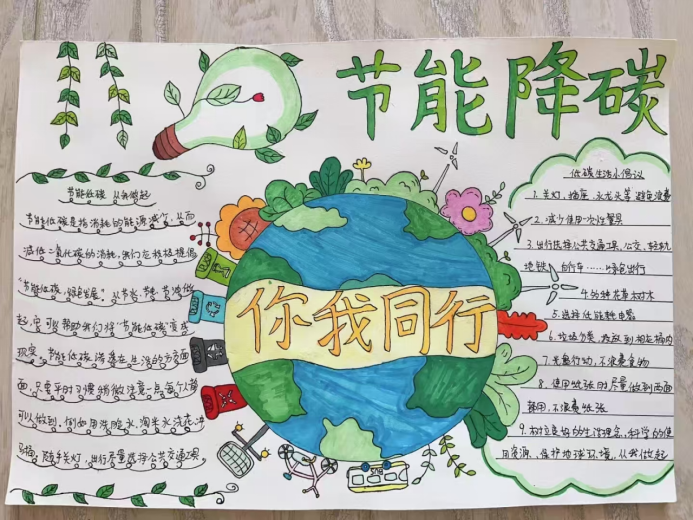 节能降碳
节能低碳 从我做起
节能低碳是指消耗的能源减少,从而
减低二氧化碳的消耗,我们应积极提倡
"节能低碳,绿色发展",从节水、节电、节油做
起,它可以帮助我们将"节能低碳"变成
现实。节能低碳渗透在生活的方方面
面,只要平时习惯稍微注意点每个人都
可以做到,例如用洗脸水,淘米水浇花、冲
马桶,随手关灯,出行尽量选择公共交通工具
你我同行
低碳生活小倡议
1.关灯,插座,水龙头等 避免浪费
2.减少使用一次性餐具
3.出行选择公共交通工具,公交,轻轨
地铁,自行车……绿色出行
4.多种花草树木
5.选择低能耗电器
6.垃圾分类,投放到相应桶内
7.光盘行动,不浪费食物
8.使用纸张时尽量做到两面
都用,不浪费纸张
9.树立良好的生活理念,科学的使
用资源,保护地球环境,从我做起